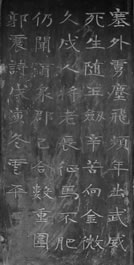 塞外虜塵飛頻年出武威
死生隨玉劍辛苦向金微
久戍人將老長征馬不肥
仍聞酒泉郡已合數重圍
郭震詩寅冬雲平